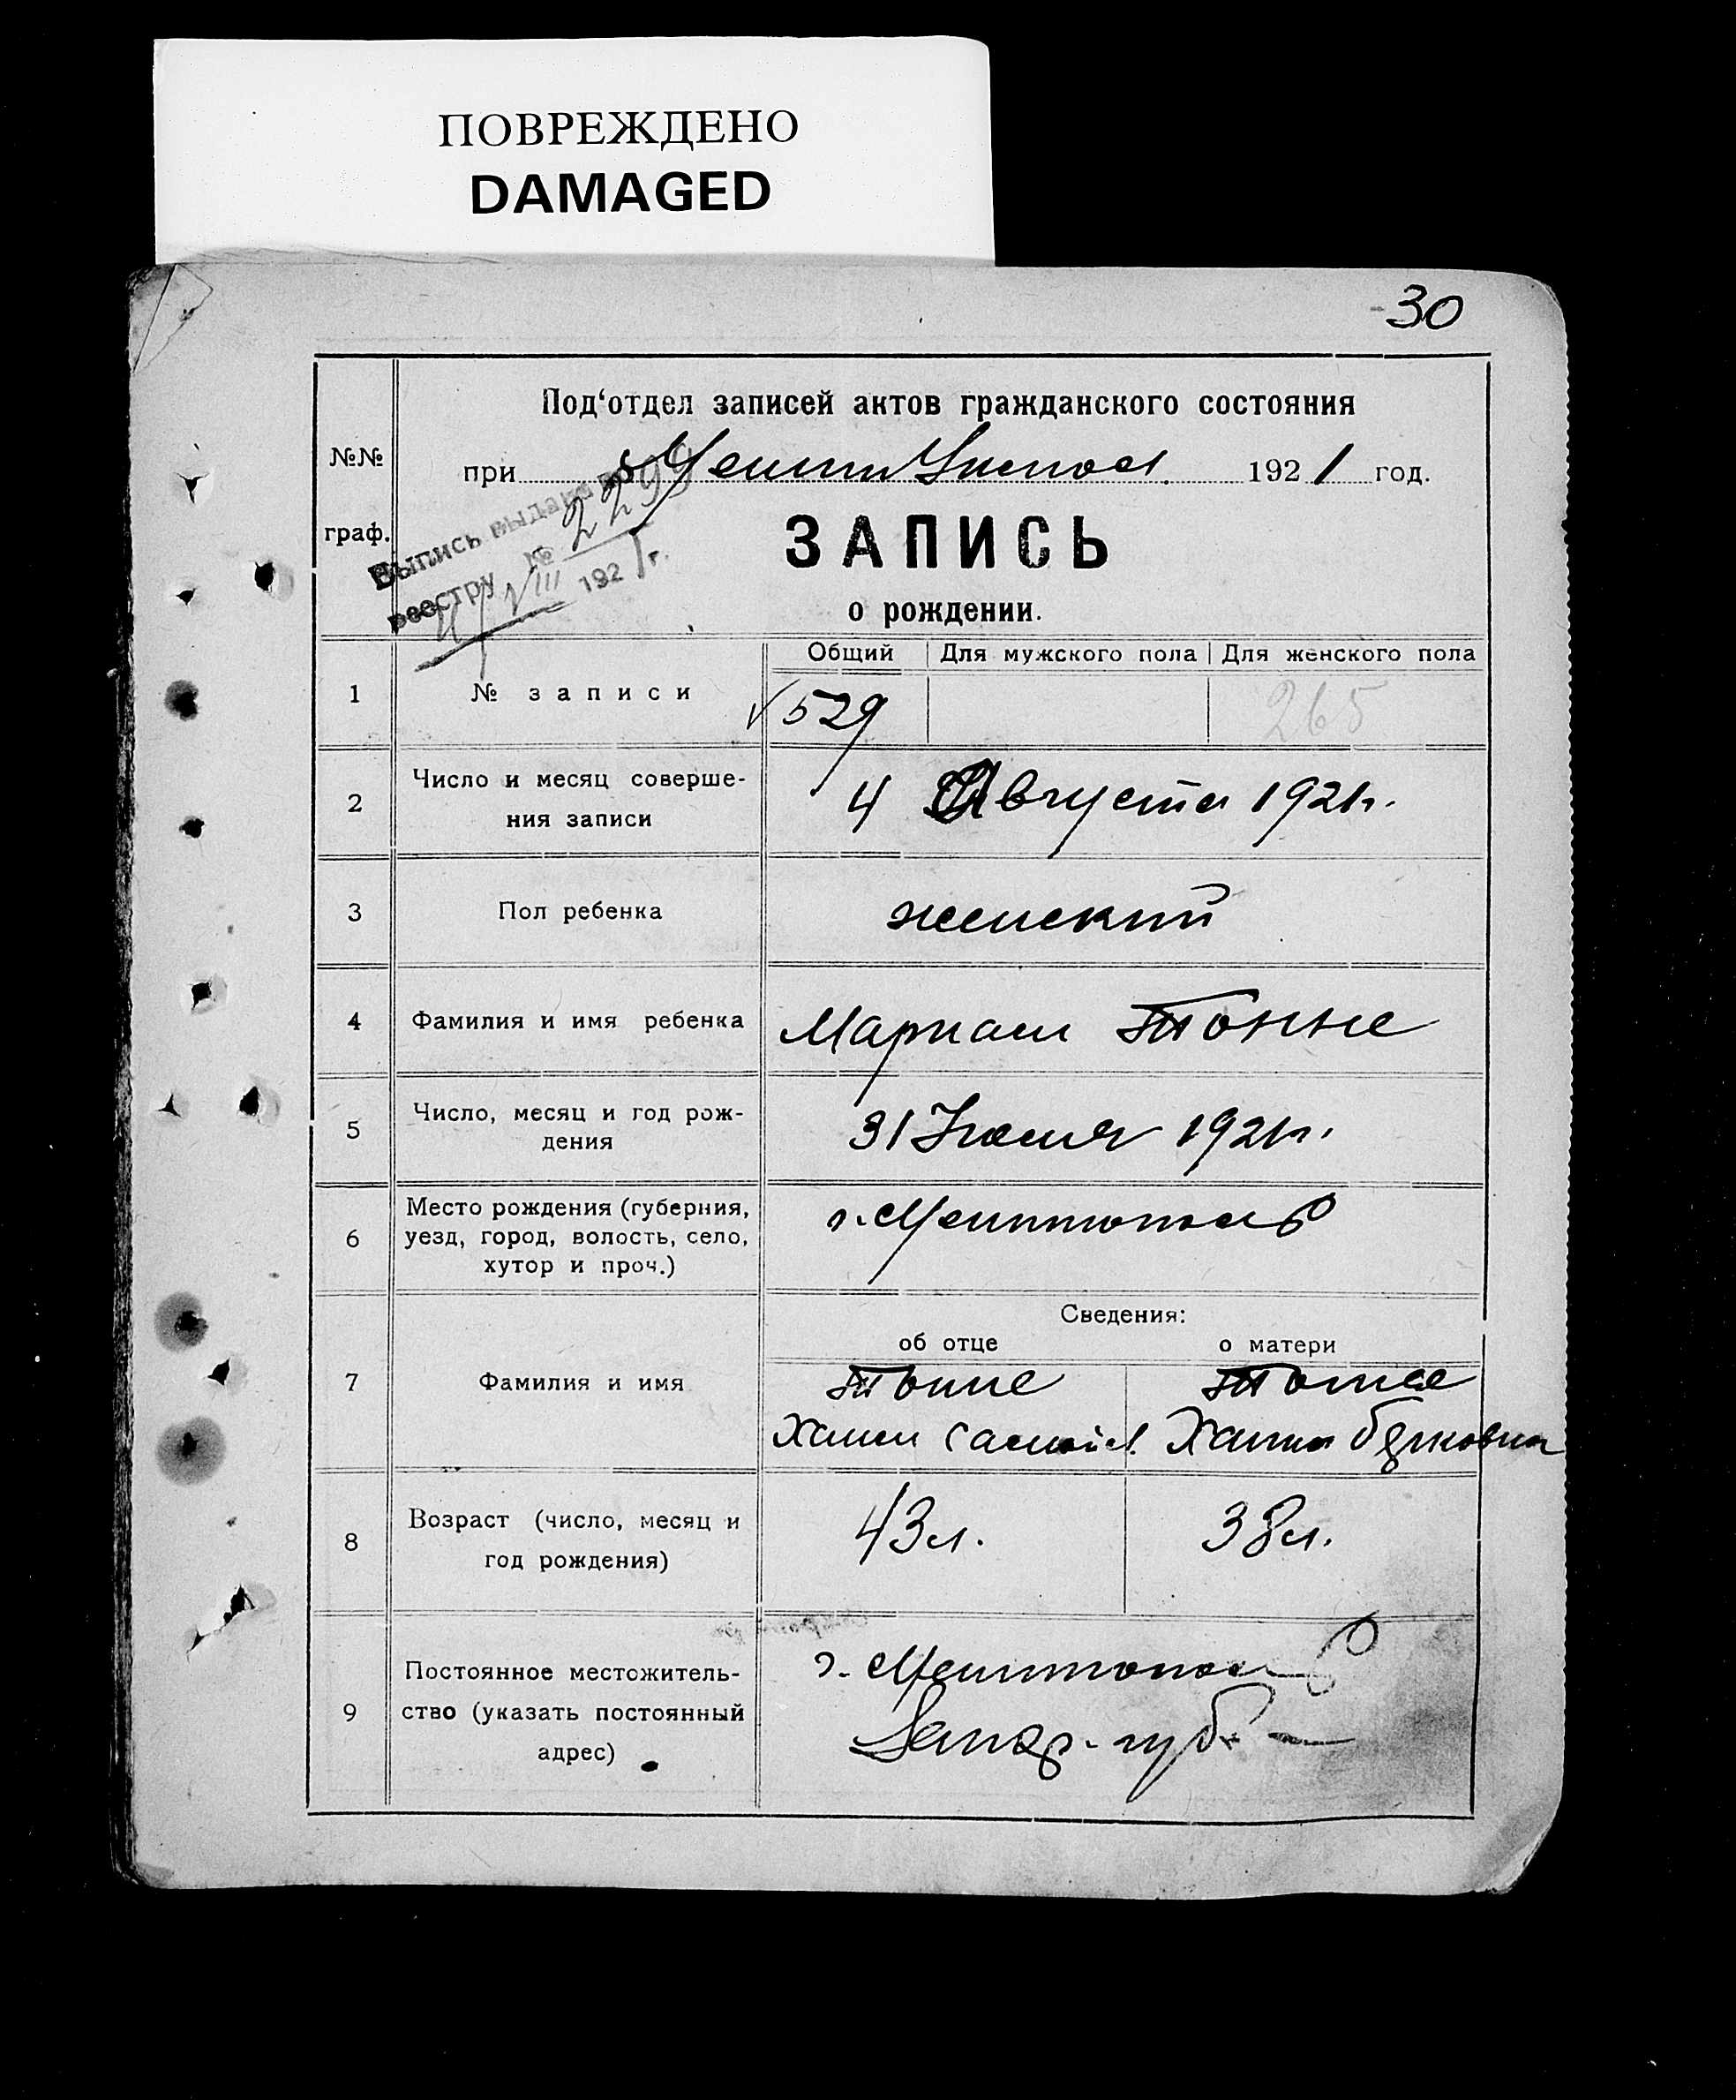 ПОВРЕЖДЕНО
DAMAGED
30
№№
граф.
Под‘отдел записей актов гражданского состояния
при 1921 год.
Выпись выдана по
реестру № 2299
4/VIII 1921 г.
ЗАПИСЬ
о рождении.
Общий Для мужского пола Для женского пола
1 № записи 529 265
2 Число и месяц соверше-
ния записи
4 Августа 1921 г.
3 Пол ребенка женский
4 Фамилия и имя ребенка Мариам Тонне
5 Число, месяц и год рож-
дения
31 Июля 1921 г.
6 Место рождения (губерния,
уезд, город, волость, село,
хутор и проч.)
г. Мелитополь
Сведения:
об отце о матери
7 Фамилия и имя
Тонне Тонне
Хаим Ханна
8 Возраст (число, месяц и
год рождения)
43 л. 38 л.
9 Постоянное местожитель-
ство (указать постоянный
адрес)
г. Мелитополь
Запор. губ.